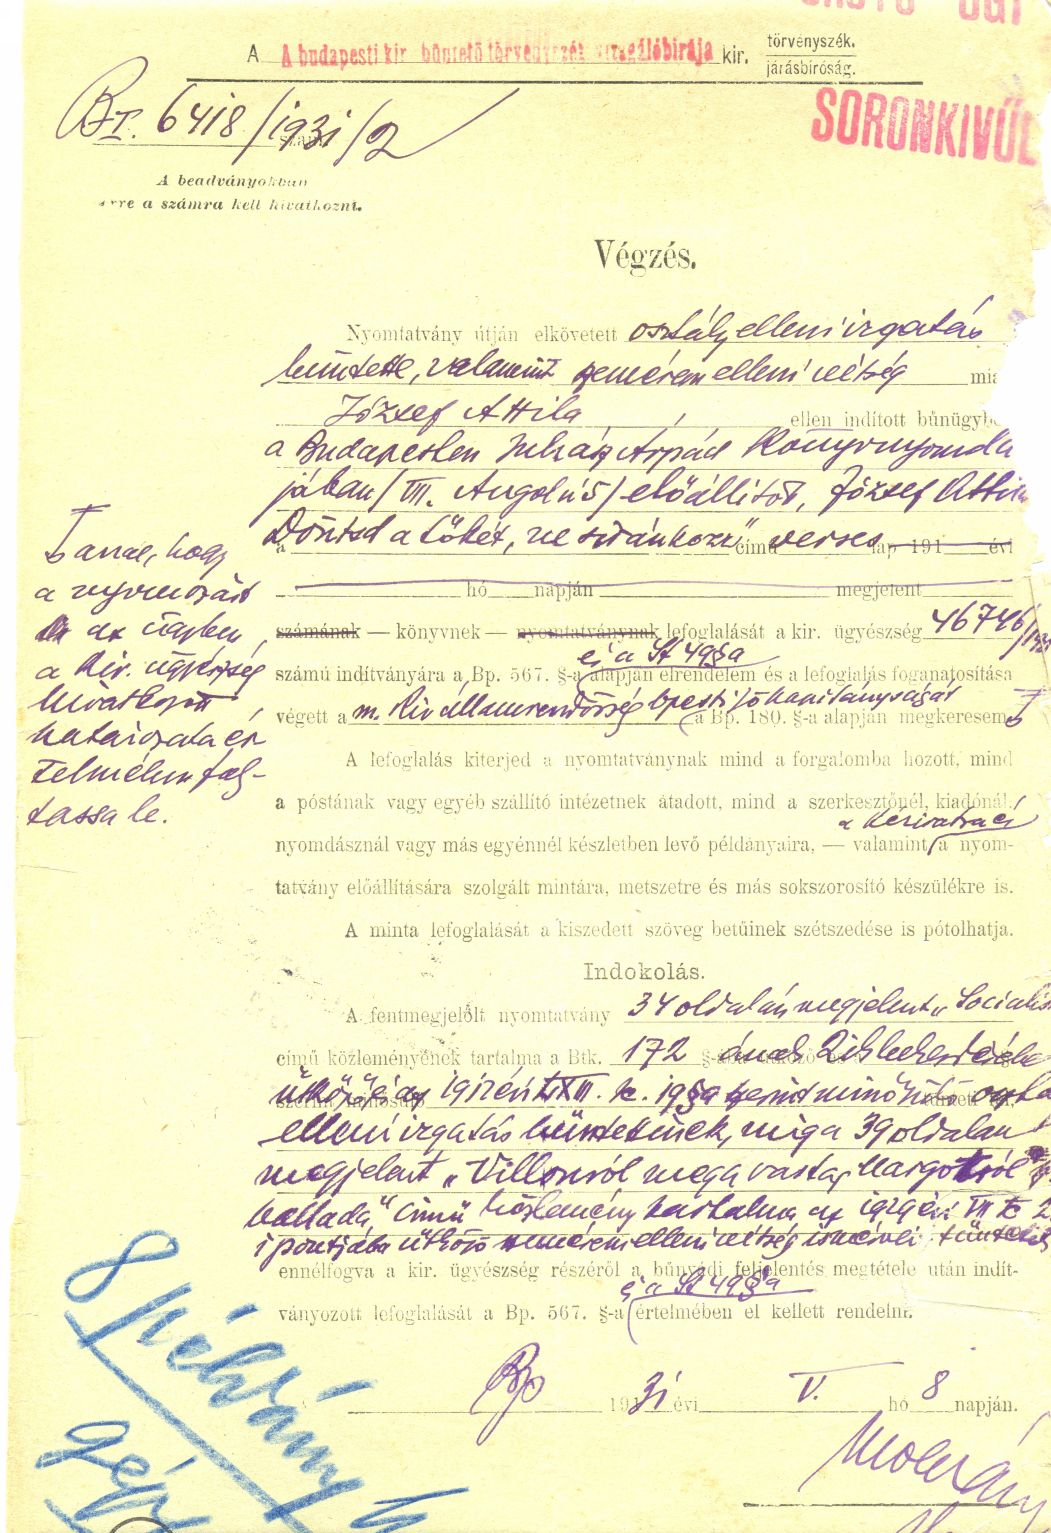 ÜGY
A A budapesti kir. büntető törvényszék vizsgálóbirája kir. törvényszék.
járásbíróság.
SORONKIVÜL
Bt. 6418/1931/2
szám
A beadványokban
erre a számra kell hivatkozni.
Végzés.
Nyomtatvány útján elkövetett osztály elleni izgatás
büntette, valamint szemérem elleni vétség mia
József Attila ellen indított bűnügyb
a Budapesten Juhász Árpád könyvnyomdá
jában / VII. Angol u 5 / előállitott, József Attila
Döntsd a tőkét, ne siránkozz" című verses lap 191 évi
hó napján megjelent
számának — könyvnek — nyomtatványnak lefoglalását a kir. ügyészség 46746/1931
és a St 49§a
számú indítványára a Bp. 567. §-a alapján elrendelem és a lefoglalás foganatosítása
végett a m. kir államrendőrség bpesti főkapitányságát a Bp. 180. §-a alapján megkeresem
arra, hogy
a nyomozást
az ügyben
a kir. ügyészség
hivatkozott
határozata ér-
telmében foly-
tassa le.
A lefoglalás kiterjed a nyomtatványnak mind a forgalomba hozott, mind
a póstának vagy egyéb szállító intézetnek átadott, mind a szerkesztőnél, kiadónál,
a kéziratra és
nyomdásznál vagy más egyénnél készletben levő példányaira, — valamint a nyom-
tatvány előállítására szolgált mintára, metszetre és más sokszorosító készülékre is.
A minta lefoglalását a kiszedett szöveg betűinek szétszedése is pótolhatja.
Indokolás.
A fentmegjelölt nyomtatvány 34 oldalán megjelent „Socialis
című közleményének tartalma a Btk. 172 §-ának 2ik bekezdésébe
ütköző és az 1912 évi LXIII. tc. 19§a szerint minősülő oszt
elleni izgatás büntettének, mig a 39 oldalán
megjelent „Villonról meg a vastag Margotról
ballada" című közlemény tartalma az
1 pontjába ütköző szemérem elleni vétség ismérveit tüntetik
ennélfogva a kir. ügyészség részéről a bűnvádi feljelentés megtétele után indít-
és a St 49§a
ványozott lefoglalását a Bp. 567. §-a értelmében el kellett rendelni.
Bp 1931 évi V. hó 8 napján.
8 példány
gép